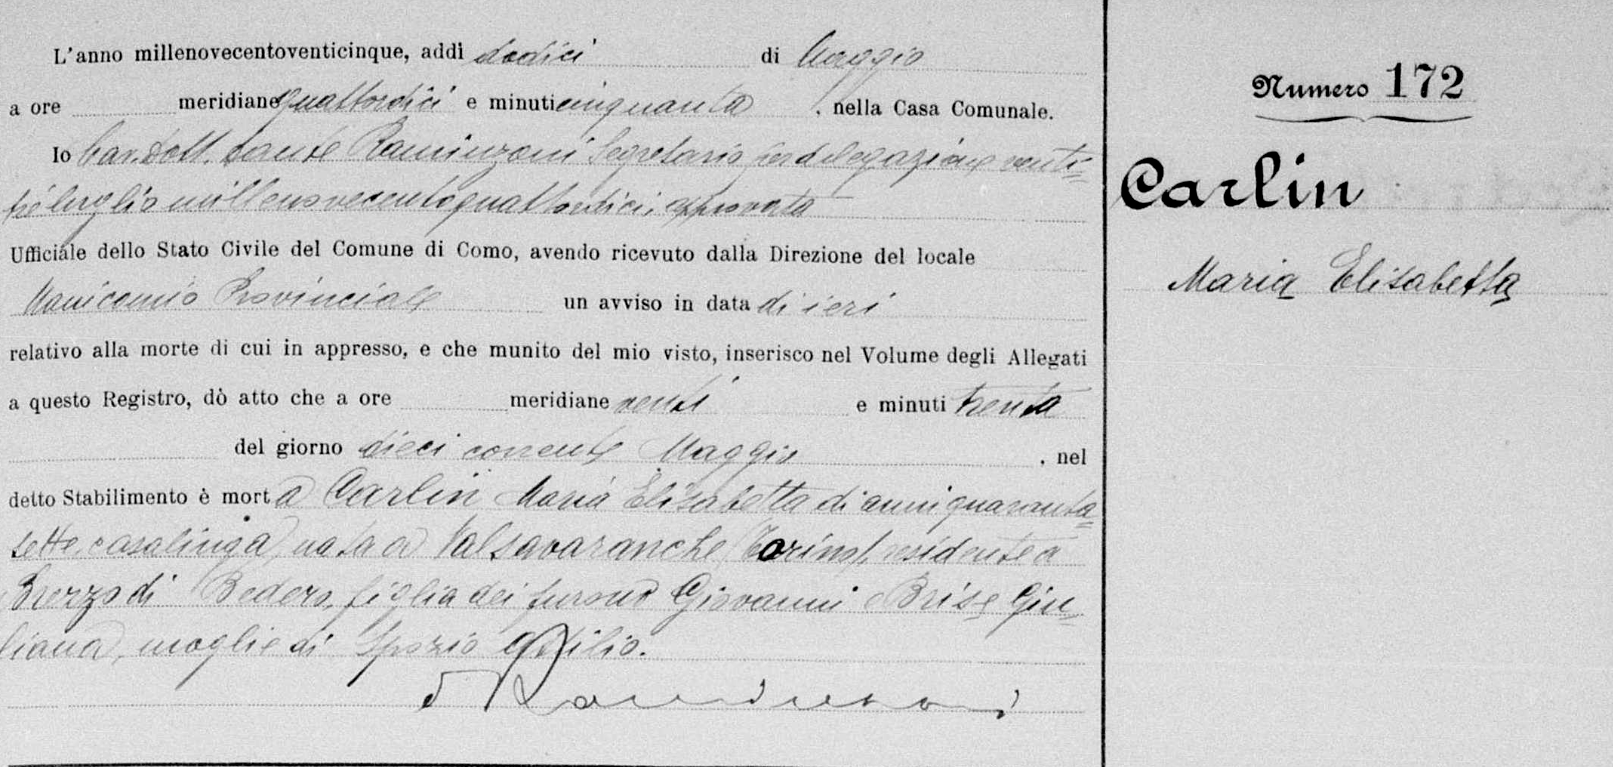 L'anno millenovecentoventicinque, addì dodici di Maggio
a ore meridiane quattordici e minuti cinquanta, nella Casa Comunale.
Io Cav. Dott. Dante Raminzoni Segretario per delegazione venti=
tre luglio millenovecentoquattordici, approvata
Ufficiale dello Stato Civile del Comune di Como, avendo ricevuto dalla Direzione del locale
Manicomio Provinciale un avviso in data di ieri
relativo alla morte di cui in appresso, e che munito del mio visto, inserisco nel Volume degli Allegati
a questo Registro, dò atto che a ore meridiane venti e minuti trenta
del giorno dieci corrente Maggio, nel
detto Stabilimento è morta Carlin Maria Elisabetta di anni quaranta=
sette, casalinga, nata a Valsavaranche (Torino), residente a
Brezzo di Bedero, figlia dei furono Giovanni e Brise Giu=
liana, moglie di Spozio
Numero 172
Carlin
Maria Elisabetta